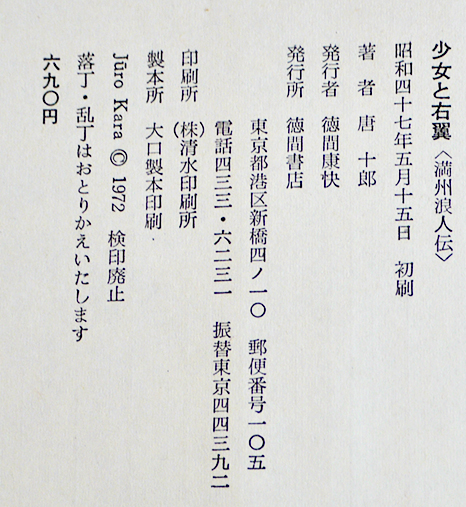 少女と右翼〈満州浪人伝〉
昭和四十七年五月十五日 初刷
著者 唐 十郎
発行者 徳間康快
発行所 徳間書店
東京都港区新橋四ノ一〇 郵便番号一〇五
電話四三三・六二三一 振替東京四四三九二
印刷所 (株)清水印刷所
製本所 大口製本印刷
Jūro Kara © 1972 検印廃止
落丁・乱丁はおとりかえいたします
六九〇円